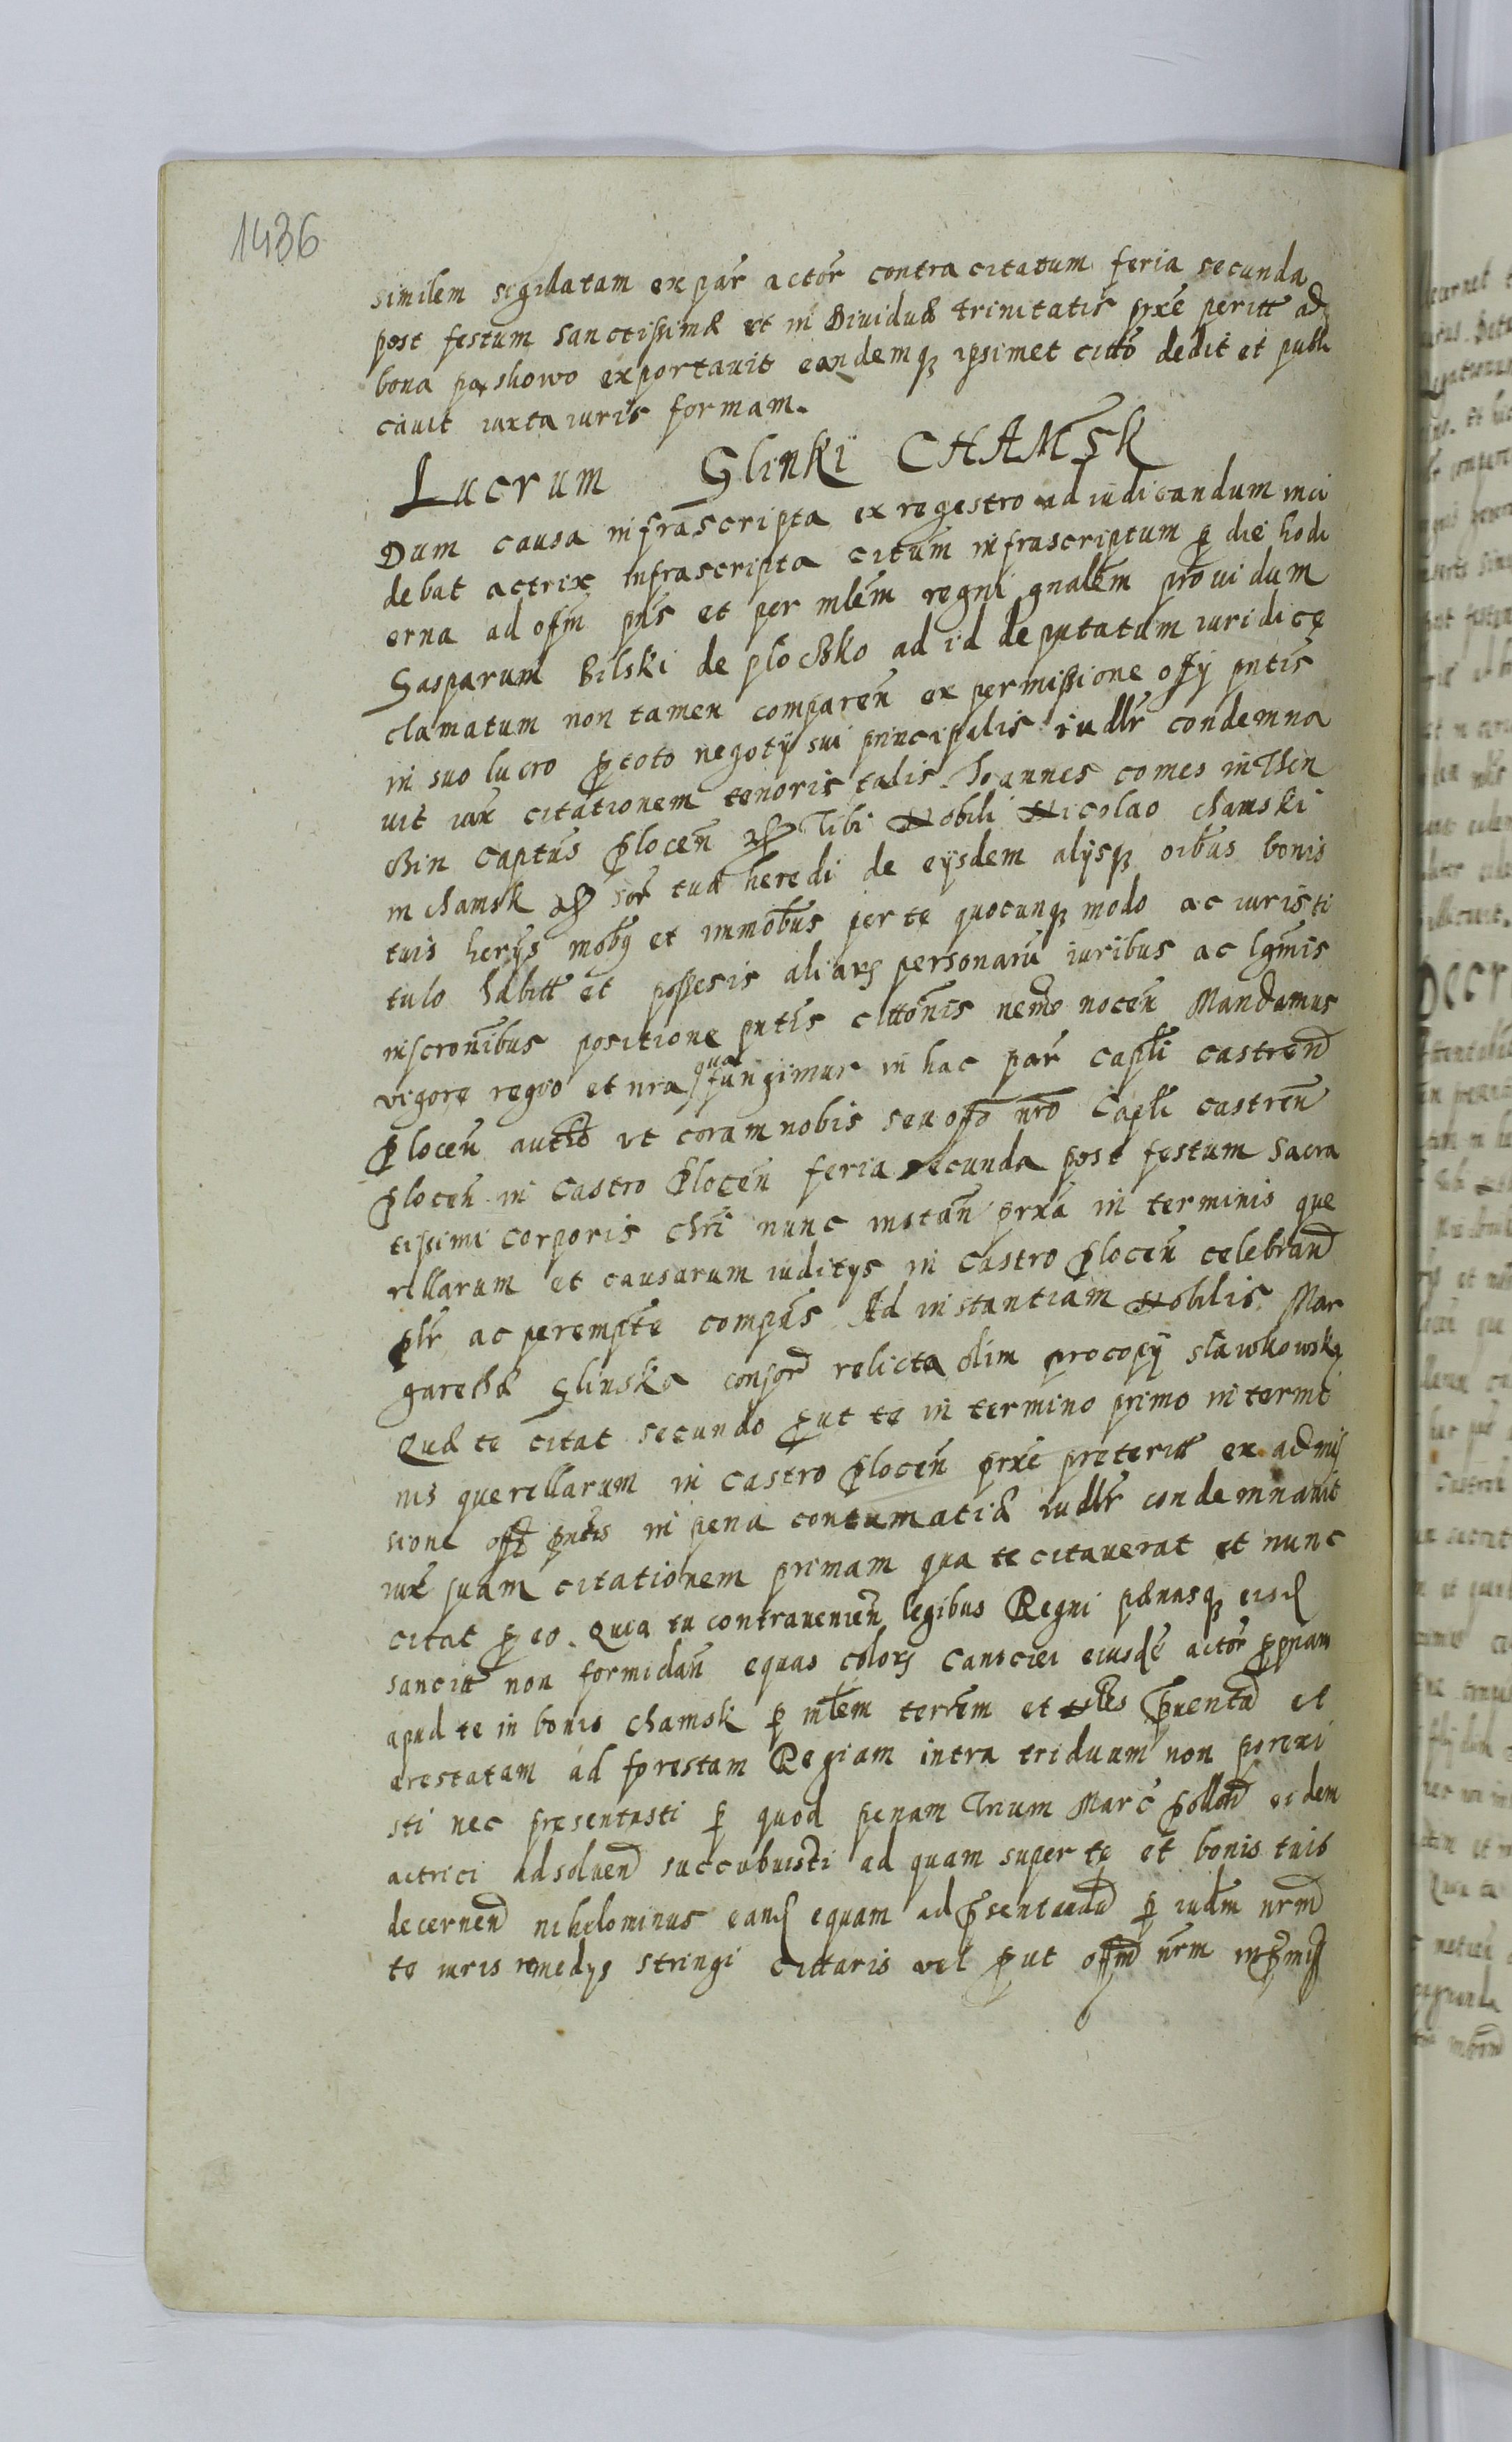 1436
similem sigillatam ex par actor contra citatum feria secunda
post festum sanctissimæ et in Diuiduæ trinitatis prxe peritt ad
bona parshowo exportauit eandemq ipsimet citto dedit et publi
cauit iuxta iuris formam.
Lucrum Glinki CHAMSK
Dum causa infrascripta ex regestro ad iudicandum inci
debat actrix infrascripta citum infrascriptum p die hodi
erna ad offm pns et per mlem regni gnalem prouidum
Gasparum Bilski de plochko ad id deputatum iuridice
clamatum non tamen comparen ex permissione offy pntis
in suo lucro p toto negotÿ sui principalis iudlr condemna
uit iux citationem tenoris talis. Joannes comes in Then
czin Captus Plocen etc Tibi Nobili Nicolao chamski
in chamsk etc sor tuæ heredi de eÿsdem alÿsq oibus bonis
tuis herÿs mobq et immobus per te quocunq modo ac iuris ti
tulo habitt et possesis aliars personaru iuribus ac lgmis
inscronibus positione pntis cittonis nemo nocen Mandamus
vigore regio et nra qua fungimur in hac par capli castren
Plocen autho vt coram nobis seu offo nro Capli castren
Plocen in Castro Plocen feria secunda post festum sacra
tissimi corporis chri nunc instan prxa in terminis que
rellarum et causarum iuditÿs in Castro Plocen celebrand
plr ac perempte compas Ad instantiam Nobilis Mar
garethæ Glinska consor relicta olim procopÿ slawkowsky
Quæ te citat secundo put te in termino primo in termi
nis querellarum in Castro Plocen prxe preteritt ex admis
sione offi pntis in pena contumatiæ iudlr condemnauit
iux suam citationem primam qua te citauerat et nunc
citat p eo. Quia tu contrauenien legibus Regni pænasq eisd
sancitt non formidan equas colors canisciei eiusde actor ppriam
apud te in bonis chamsk p mlem terrem et nles puentā et
arestatam ad forestam Regiam intra triduum non porexi
sti nec presentasti p quod penam Trium Marc pollon eidem
actrici ad soluend succubuisti ad quam super te et bonis tuis
decernend nihilominus eand equam ad psentandu p iudm nrm
te iuris remedÿs stringi cittaris vel put offm nrm inpmiss